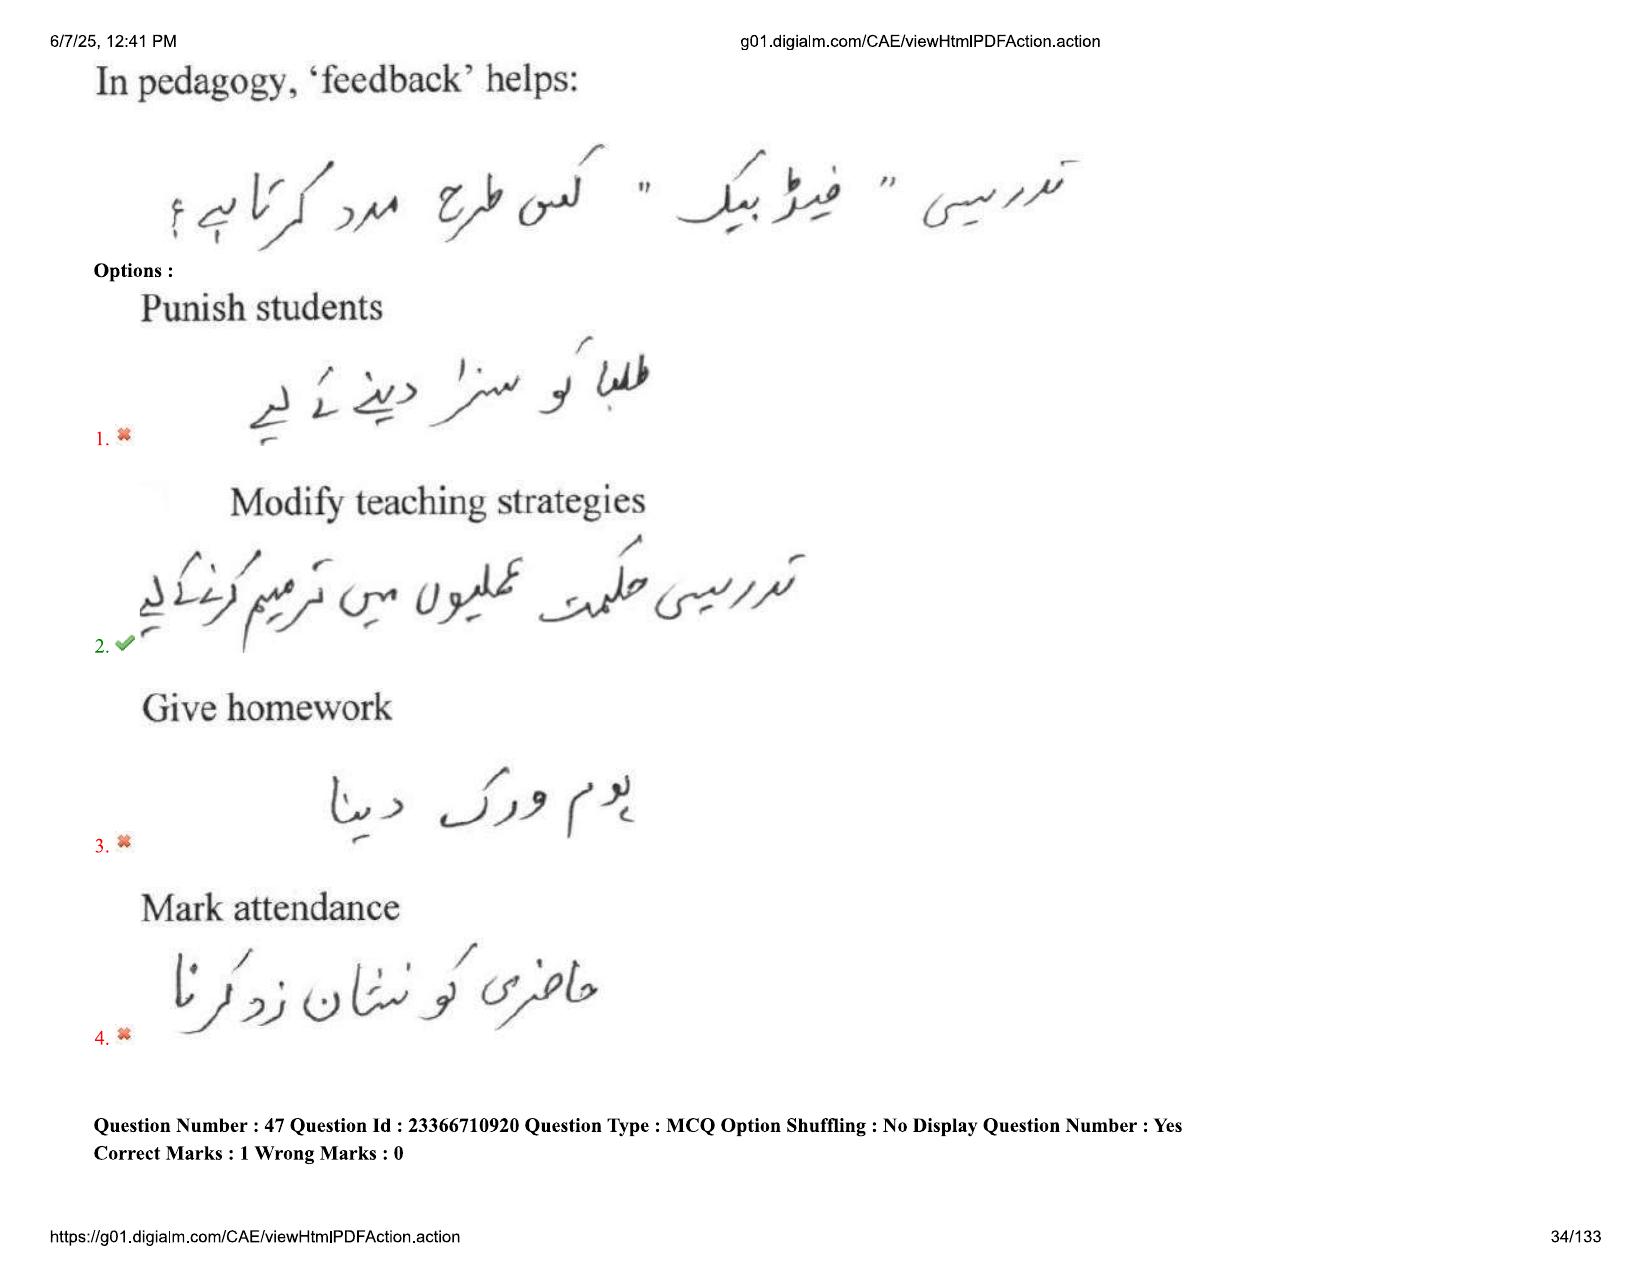 6/7/25, 12:41 PM
g01.digialm.com/CAE/viewHtmlPDFAction.action
In pedagogy, ‘feedback’ helps:
تدریسی " فیڈ بیک " کس طرح مدد کرتا ہے ؟
Options :
Punish students
طلبا کو سزا دینے کے لیے
1.
Modify teaching strategies
تدریسی حکمت عملیوں میں ترمیم کرنے کے لیے
2.
Give homework
ہوم ورک دینا
3.
Mark attendance
حاضری کو نشان زد کرنا
4.
Question Number : 47 Question Id : 23366710920 Question Type : MCQ Option Shuffling : No Display Question Number : Yes
Correct Marks : 1 Wrong Marks : 0
https://g01.digialm.com/CAE/viewHtmlPDFAction.action
34/133